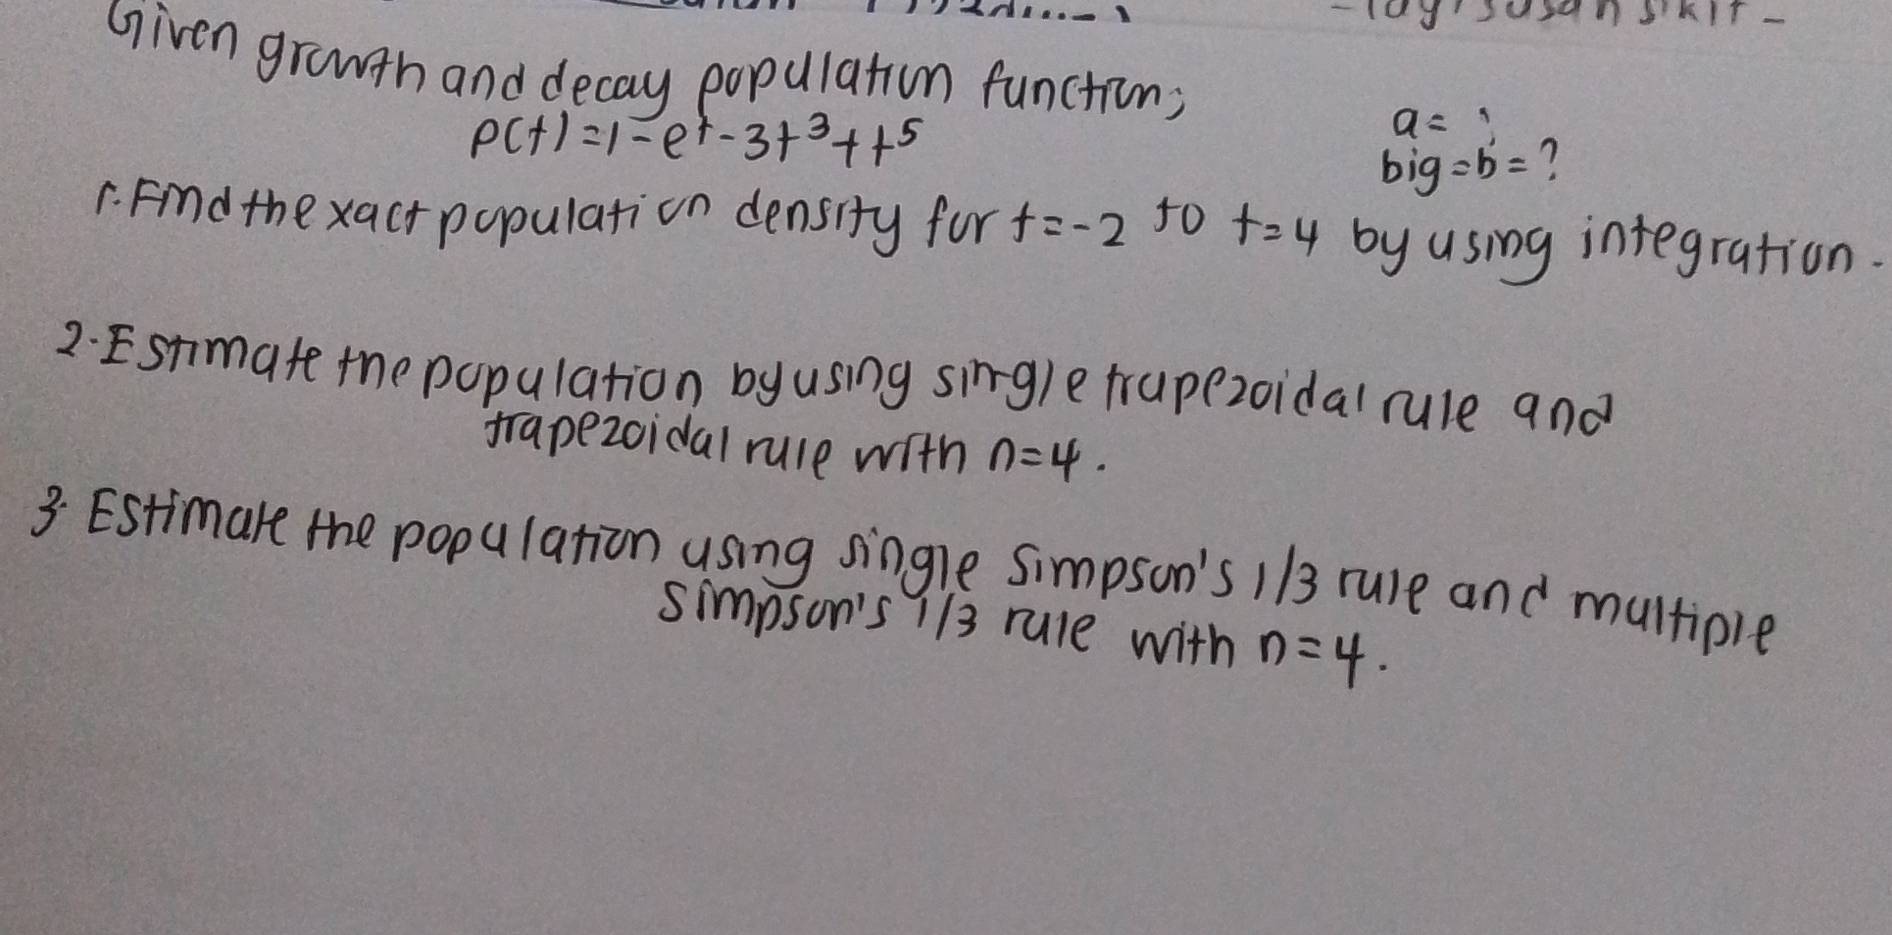 Given growth and decay population function;
P(t)=1-e^t-3t^3+t^5
a=
big=b=?
1. Find the xact population density for t=-2 to t=4 by using integration.
2. Estimate the population by using single trapezoidal rule and
trapezoidal rule with n=4.
3. Estimate the population using single Simpson's 1/3 rule and multiple
Simpson's 1/3 rule with n=4.